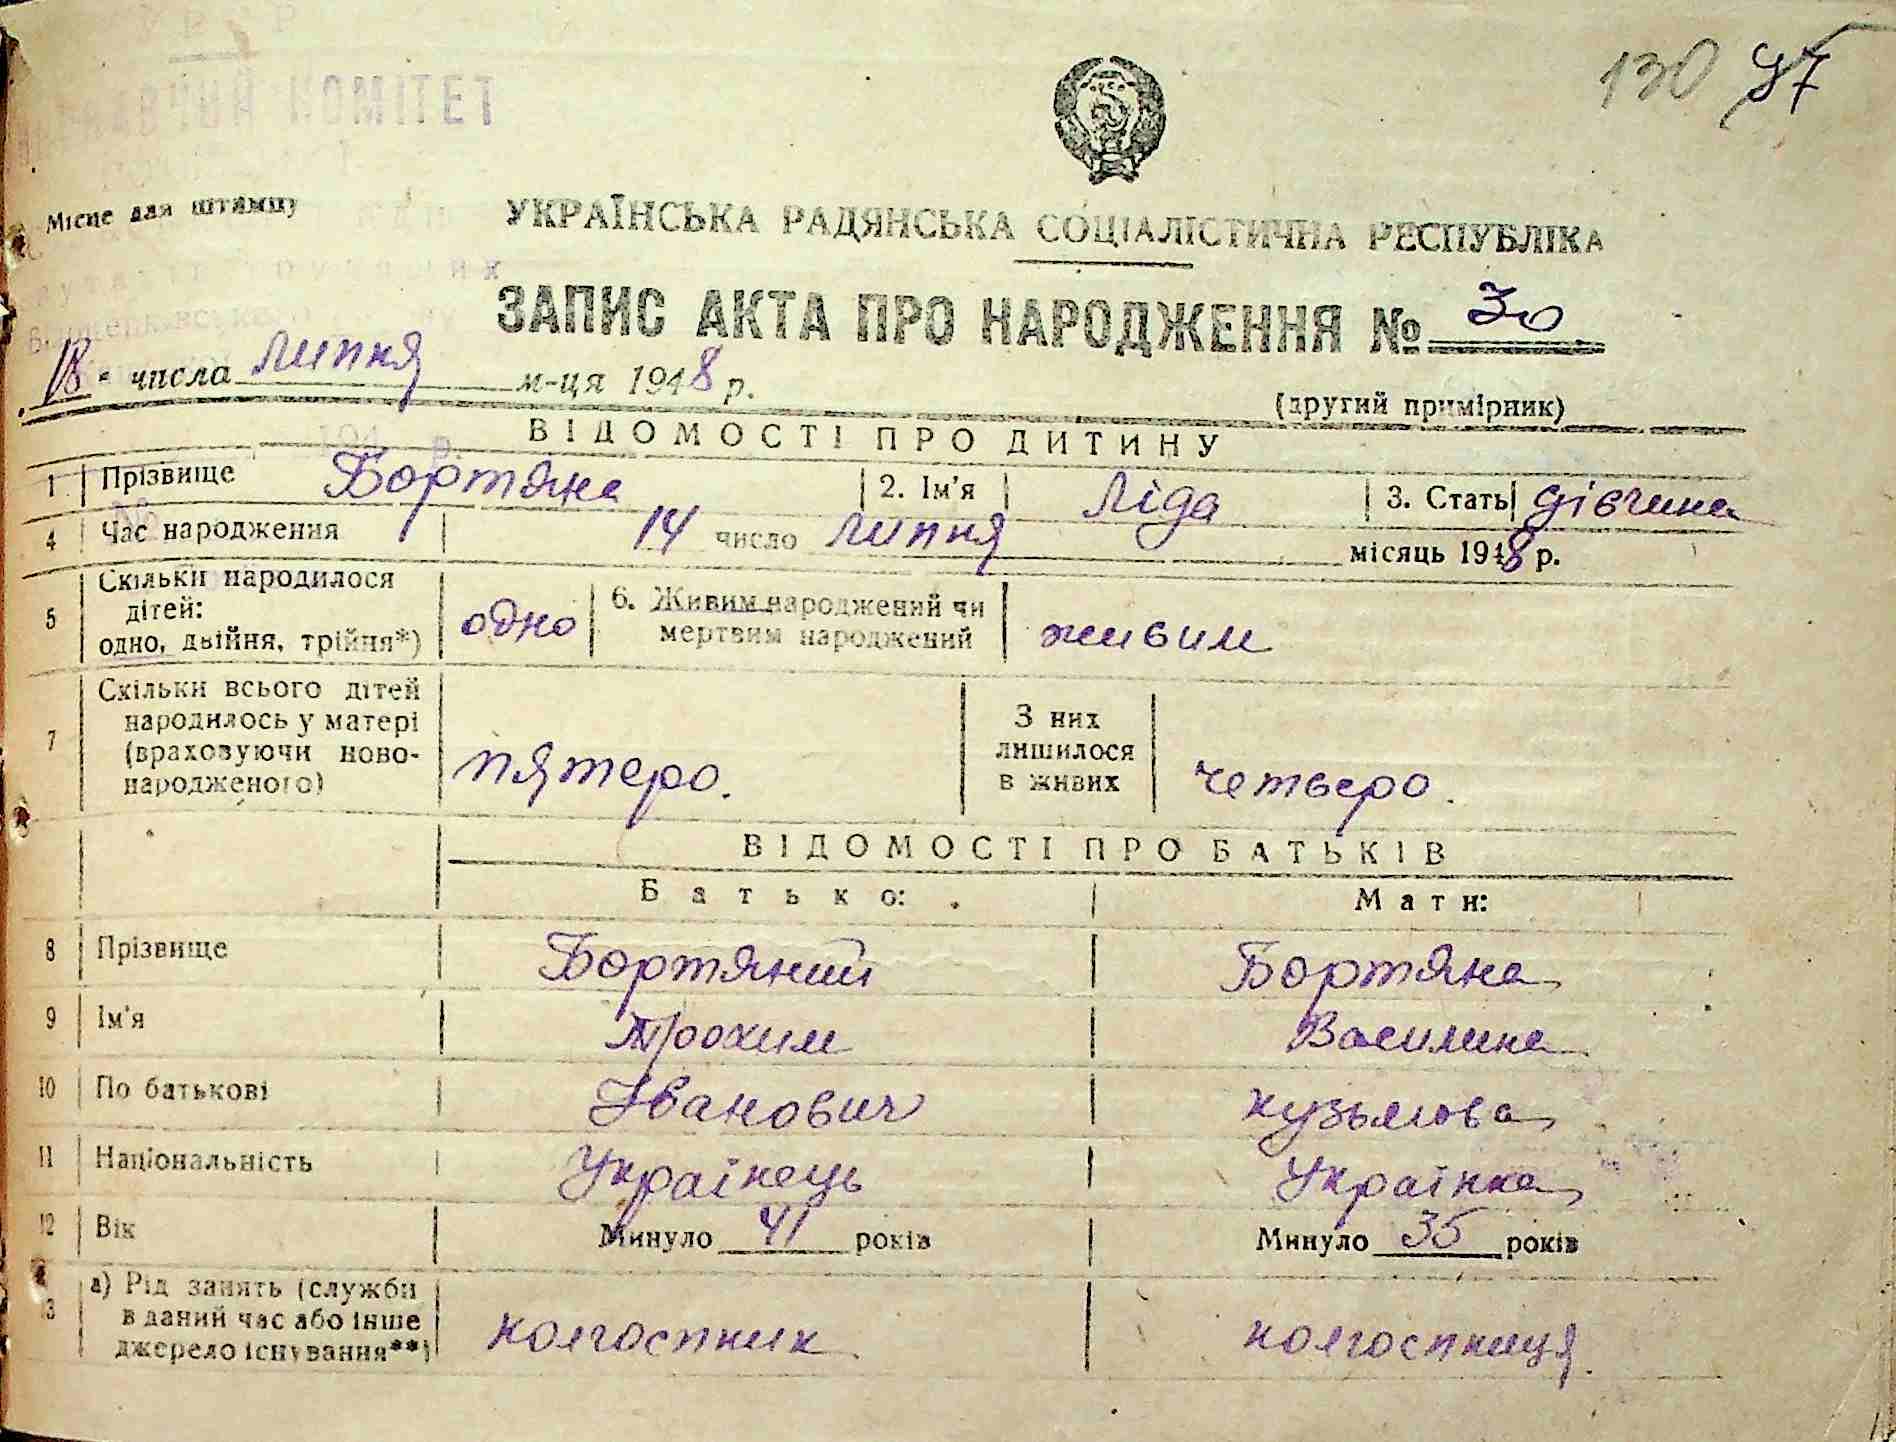 130 47
КОМІТЕТ
Місце для штампу
УКРАЇНСЬКА РАДЯНСЬКА СОЦІАЛІСТИЧНА РЕСПУБЛІКА
ЗАПИС АКТА ПРО НАРОДЖЕННЯ № 30
18 " числа липня м-ця 1948 р.
(другий примірник)
ВІДОМОСТІ ПРО ДИТИНУ
1 Прізвище Бортяна 2. Ім'я Ліда 3. Стать дівчина
4 Час народження 14 число липня місяць 1948 р.
5 Скільки народилося дітей: одно, двійня, трійня*) одно 6. Живим народжений чи мертвим народжений живим
7 Скільки всього дітей народилось у матері (враховуючи новонародженого) пятеро. З них лишилося в живих четверо.
ВІДОМОСТІ ПРО БАТЬКІВ
Батько: Мати:
8 Прізвище Бортяний Бортяна
9 Ім'я Трохим Василина
10 По батькові Іванович Кузьмова
11 Національність Українець Українка
12 Вік Минуло 41 років Минуло 35 років
13 а) Рід занять (служби в даний час або інше джерело існування**) колгоспник колгоспниця